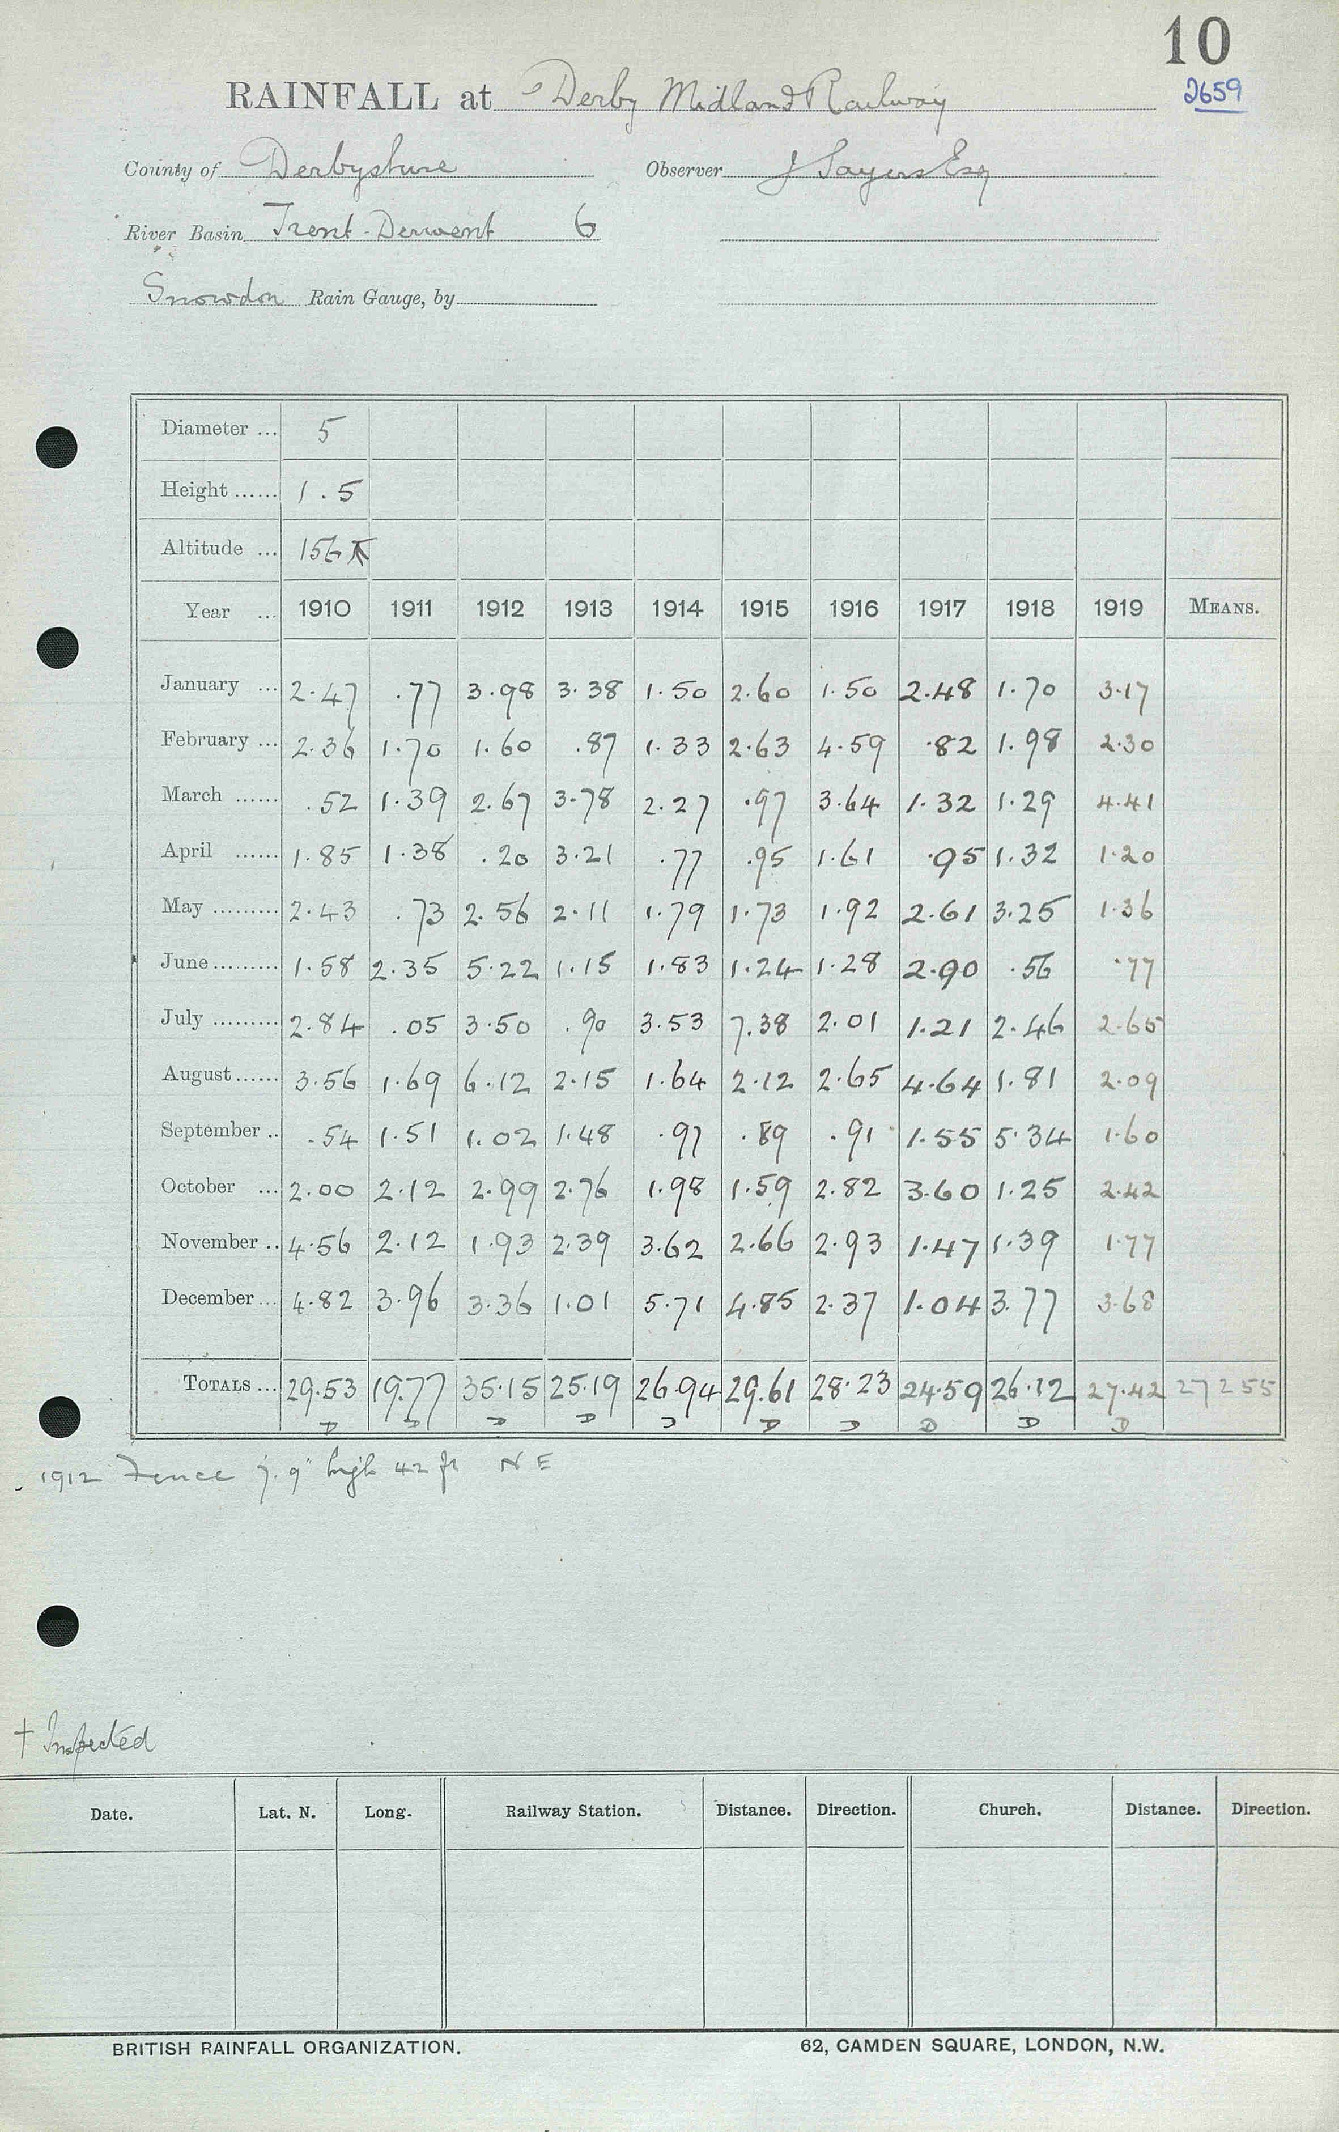 10
RAINFALL at Derby Midland Railway 2659
County of Derbyshire Observer J Sayers Esq
River Basin Trent-Derwent 6
Snowdon Rain Gauge, by
Diameter ... 5
Height ...... 1.5
Altitude ... 156
Year ... 1910 1911 1912 1913 1914 1915 1916 1917 1918 1919 MEANS.
January ... 2.47 .77 3.98 3.38 1.50 2.60 1.50 2.48 1.70 3.17
February ... 2.36 1.70 1.60 .87 1.33 2.63 4.59 .82 1.98 2.30
March ...... .52 1.39 2.67 3.78 2.27 .97 3.64 1.32 1.29 4.41
April ...... 1.85 1.38 .20 3.21 .77 .95 1.61 .95 1.32 1.20
May ......... 2.43 .73 2.56 2.11 1.79 1.73 1.92 2.61 3.25 1.36
June ......... 1.58 2.35 5.22 1.15 1.83 1.24 1.28 2.90 .56 .77
July ......... 2.84 .05 3.50 .90 3.53 7.38 2.01 1.21 2.46 2.65
August ...... 3.56 1.69 6.12 2.15 1.64 2.12 2.65 4.64 1.81 2.09
September .. .54 1.51 1.02 1.48 .97 .89 .91 1.55 5.34 1.60
October ... 2.00 2.12 2.99 2.76 1.98 1.59 2.82 3.60 1.25 2.42
November .. 4.56 2.12 1.93 2.39 3.62 2.66 2.93 1.47 1.39 1.77
December ... 4.82 3.96 3.36 1.01 5.71 4.85 2.37 1.04 3.77 3.68
TOTALS ... 29.53 19.77 35.15 25.19 26.94 29.61 28.23 24.59 26.12 27.42 27255
D D D D D D D D D D
1912 Fence 7.9" high 42 ft NE
† Inspected
Date. Lat. N. Long. Railway Station. Distance. Direction. Church. Distance. Direction.
BRITISH RAINFALL ORGANIZATION. 62, CAMDEN SQUARE, LONDON, N.W.